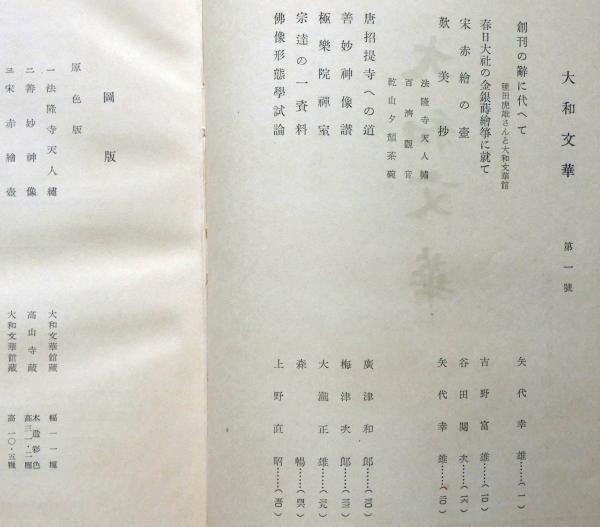 大和文華　第一號
創刊の辭に代へて　矢代幸雄……（一）
種田虎雄さんと大和文華館
春日大社の金銀蒔繪箏に就て　吉野富雄……（一〇）
宋赤繪の壺　谷田閲次……（一六）
歎美抄　矢代幸雄……（二〇）
法隆寺天人繡
百濟觀音
乾山夕顏茶碗
唐招提寺への道　廣津和郎……（三〇）
善妙神像讃　梅津次郎……（三三）
極樂院禪室　大瀧正雄……（三九）
宗達の一資料　森　暢……（四六）
佛像形態學試論　上野直昭……（五〇）
圖版
原色版
一 法隆寺天人繡　大和文華館藏　幅一一糎
二 善妙神像　高山寺藏　木造彩色　高三一・二糎
三 宋赤繪壺　大和文華館藏　高一〇・五糎
大和文華